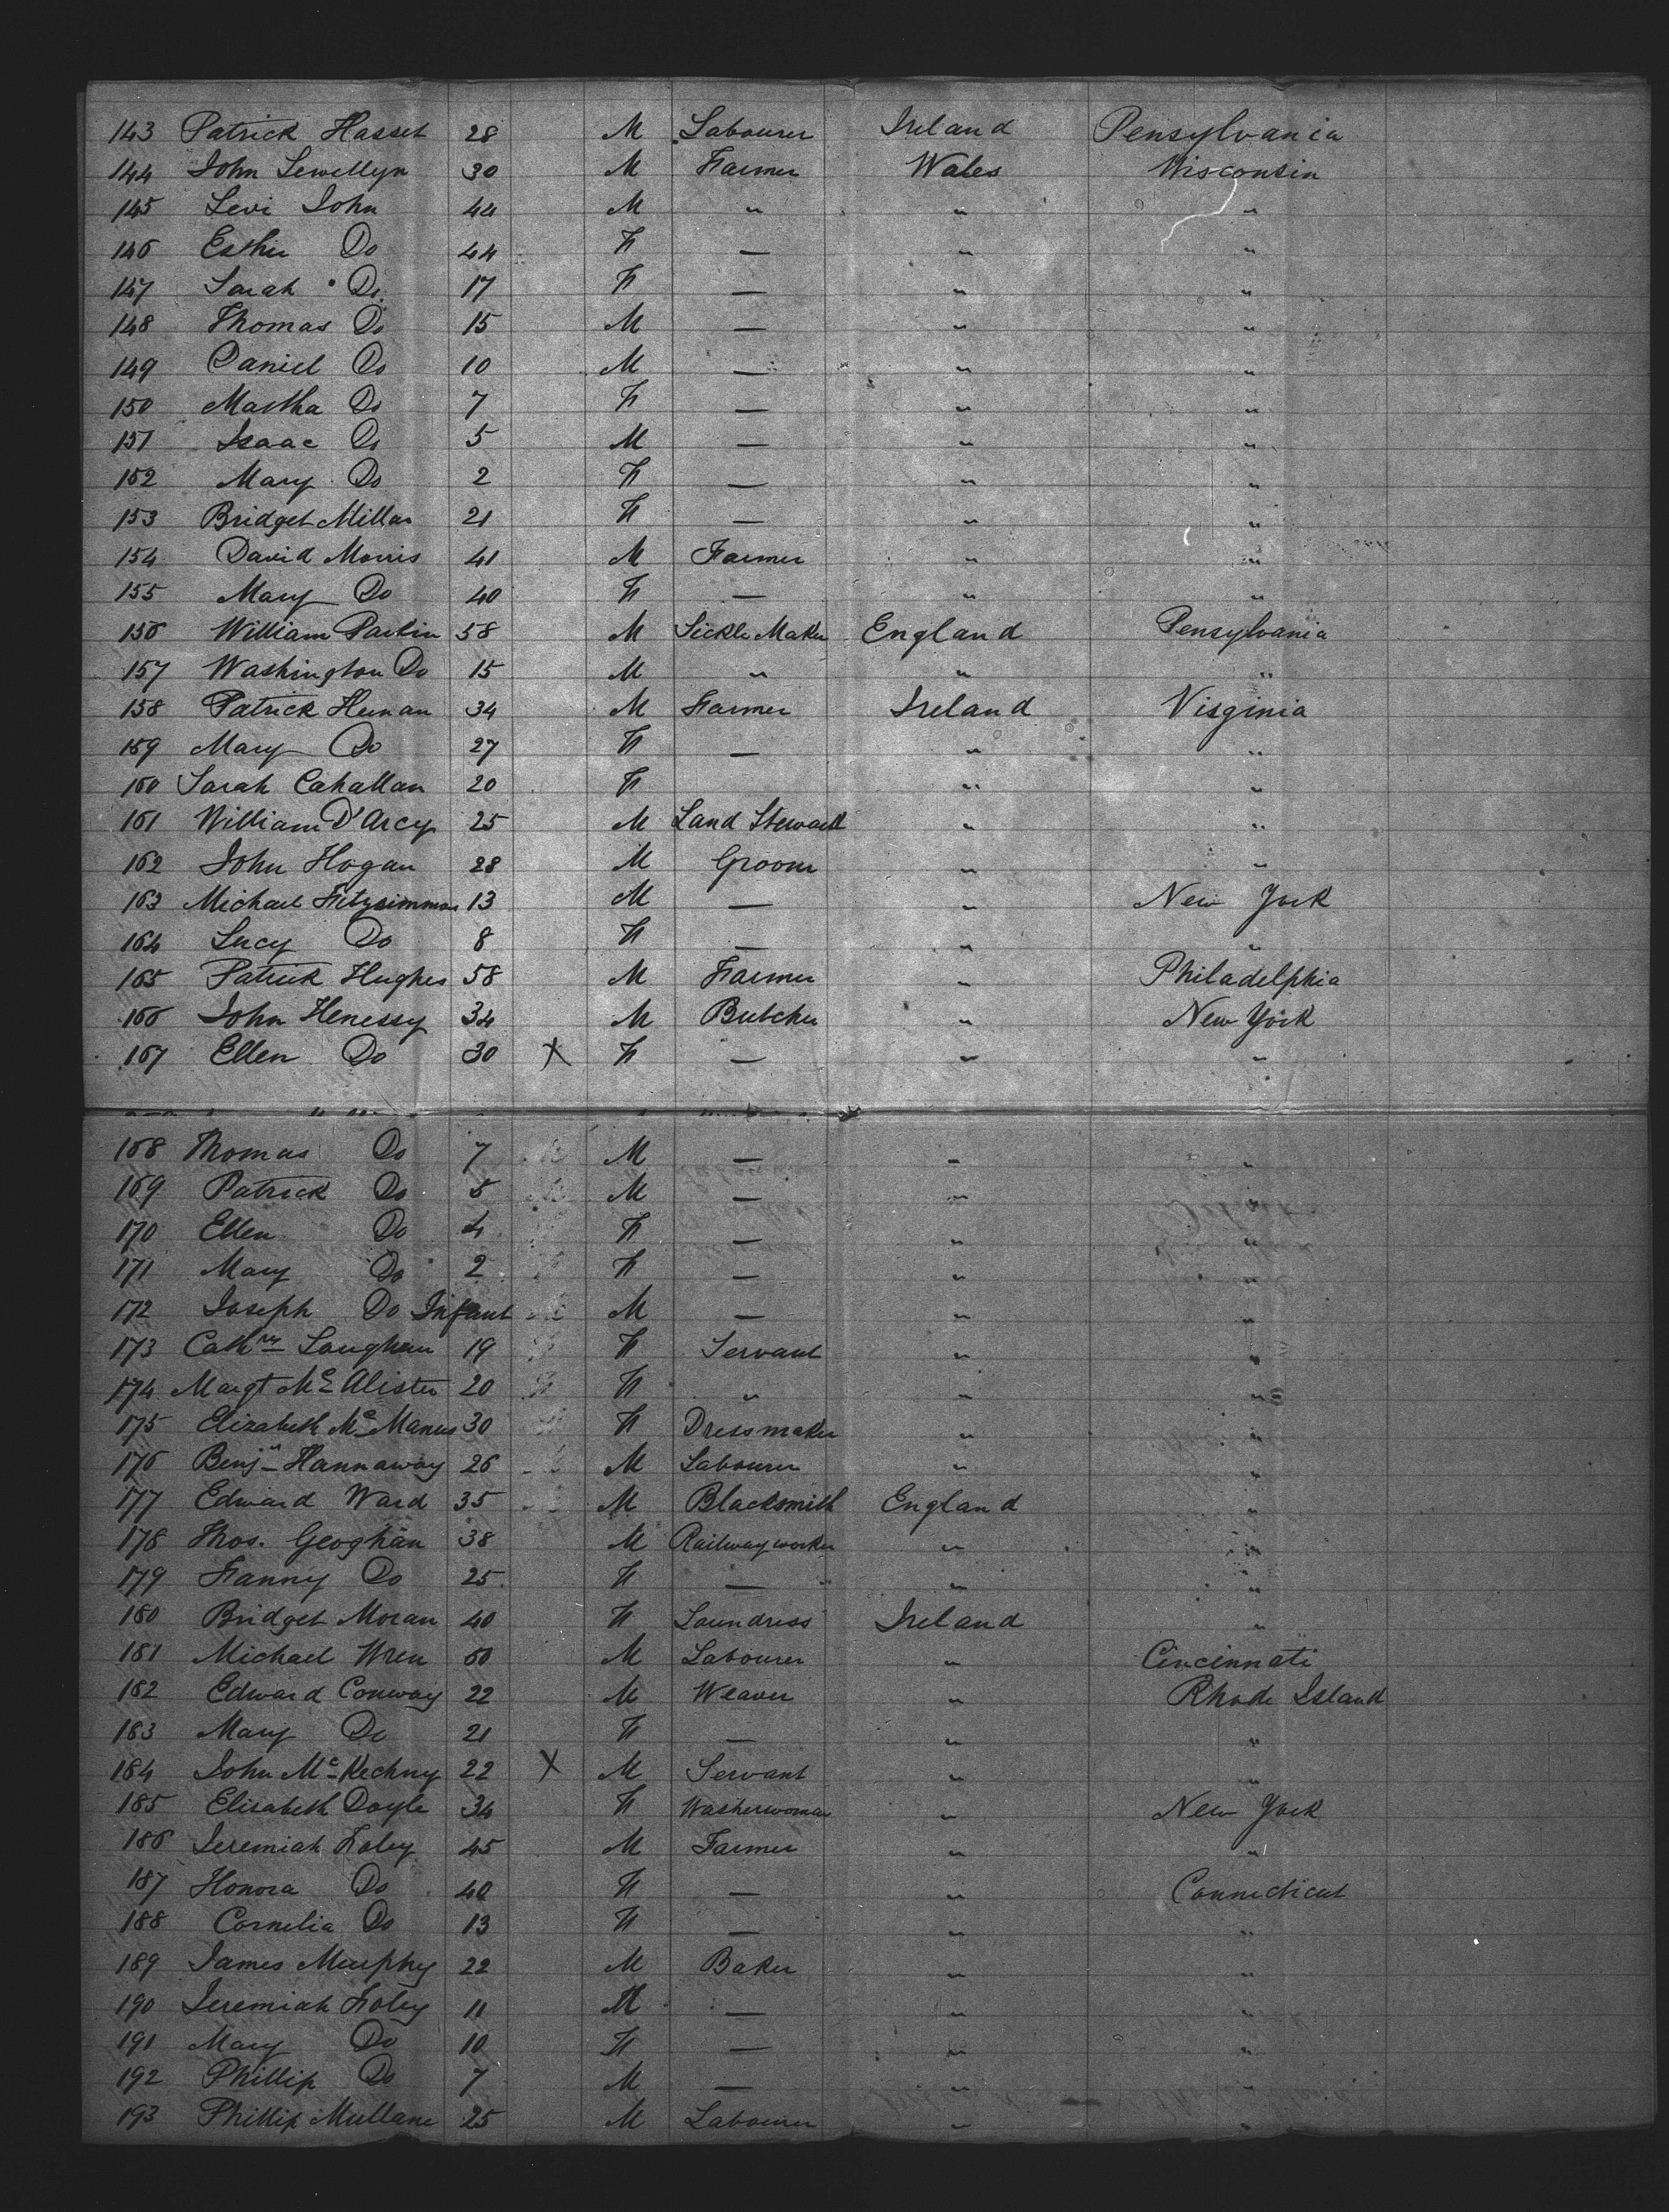 143 Patrick Hasset 28 M Labourer Ireland Pensylvania
144 John Lewellyn 30 M Farmer Wales Wisconsin
145 Levi John 44 M " " "
146 Esther Do 44 F — " "
147 Sarah Do 17 F — " "
148 Thomas Do 15 M — " "
149 Daniel Do 10 M — " "
150 Martha Do 7 F — " "
151 Isaac Do 5 M — " "
152 Mary Do 2 F — " "
153 Bridget Millar 21 F — " "
154 David Morris 41 M Farmer " "
155 Mary Do 40 F — " "
156 William Parkin 58 M Sickle Maker England Pensylvania
157 Washington Do 15 M " " "
158 Patrick Heenan 34 M Farmer Ireland Virginia
159 Mary Do 27 F — " "
160 Sarah Cahallan 20 F " "
161 William D'Arcy 25 M Land Steward " "
162 John Hogan 28 M Groom " "
163 Michael Fitzsimmons 13 M — " New York
164 Lucy Do 8 F — " "
165 Patrick Hughes 58 M Farmer " Philadelphia
166 John Henessy 34 M Butcher " New York
167 Ellen Do 30 X F — " "
168 Thomas Do 7 M — " "
169 Patrick Do 5 M — " "
170 Ellen Do 4 F — " "
171 Mary Do 2 F — " "
172 Joseph Do Infant M — " "
173 Cathne Laughan 19 F Servant " "
174 Margt McAlister 20 F " " "
175 Elizabeth McManus 30 F Dressmaker " "
176 Benjn Hannaway 26 M Labourer " "
177 Edward Ward 35 M Blacksmith England "
178 Thos. Geoghan 38 M Railway worker " "
179 Fanny Do 25 F — " "
180 Bridget Moran 40 F Laundress Ireland "
181 Michael Wren 60 M Labourer " Cincinnati
182 Edward Conway 22 M Weaver " Rhode Island
183 Mary Do 21 F — " "
184 John McKechny 22 X M Servant " "
185 Elisabeth Doyle 34 F Washerwoman " New York
186 Jeremiah Foley 45 M Farmer " "
187 Honora Do 40 F — " Connecticut
188 Cornelia Do 13 F — " "
189 James Murphy 22 M Baker " "
190 Jeremiah Foley 11 M — " "
191 Mary Do 10 F — " "
192 Phillip Do 7 M — " "
193 Phillip Mullane 25 M Labourer " "